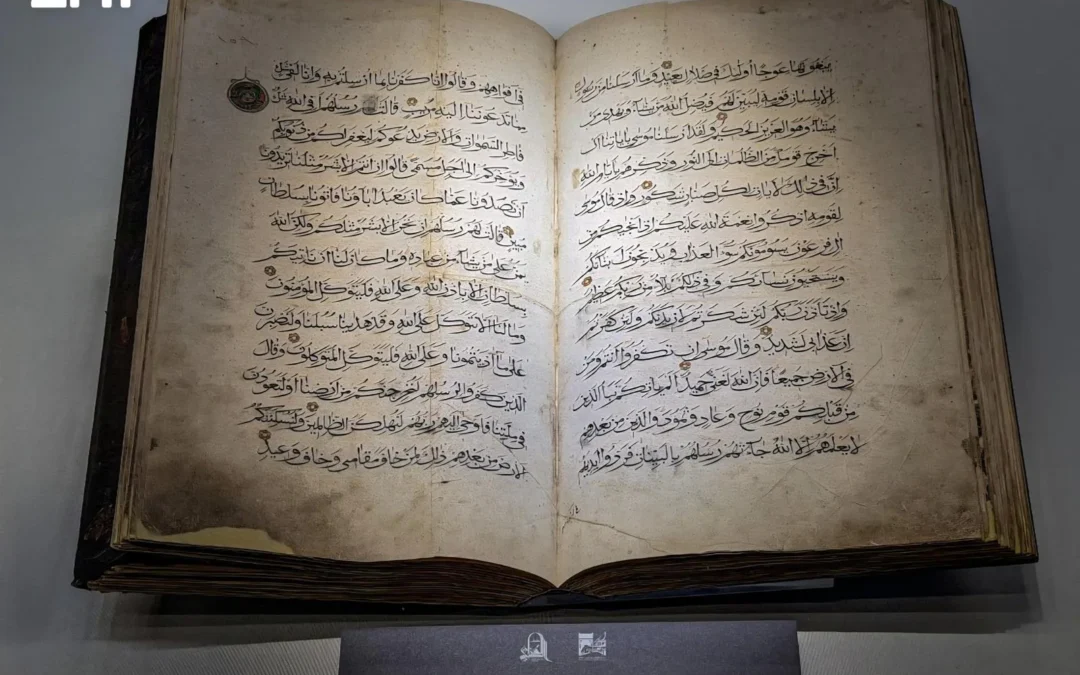 يبغونها عوجا اوليك في ضلال بعيد وما ارسلنا من رسول
الا بلسان قومه ليبين لهم فيضل الله من يشاء ويهدي من
يشاء وهو العزيز الحكيم ولقد ارسلنا موسى باياتنا ان
اخرج قومك من الظلمات الى النور وذكرهم بايام الله
ان في ذلك لايات لكل صبار شكور واذ قال موسى
لقومه اذكروا نعمة الله عليكم اذ انجيكم من
ال فرعون يسومونكم سوء العذاب ويذبحون ابناءكم
ويستحيون نساءكم وفي ذلكم بلاء من ربكم عظيم
واذ تاذن ربكم لئن شكرتم لازيدنكم ولئن كفرتم
ان عذابي لشديد وقال موسى ان تكفروا انتم ومن
في الارض جميعا فان الله لغني حميد الم ياتكم نبا الذين
من قبلكم قوم نوح وعاد وثمود والذين من بعدهم
لا يعلمهم الا الله جاءتهم رسلهم بالبينات فردوا ايديهم
في افواههم وقالوا انا كفرنا بما ارسلتم به وانا لفي شك
مما تدعوننا اليه مريب قالت رسلهم افي الله شك
فاطر السموات والارض يدعوكم ليغفر لكم من ذنوبكم
ويوخركم الى اجل مسمى قالوا ان انتم الا بشر مثلنا تريدون
ان تصدونا عما كان يعبد اباؤنا فاتونا بسلطان
مبين قالت لهم رسلهم ان نحن الا بشر مثلكم ولكن الله
يمن على من يشاء من عباده وما كان لنا ان ناتيكم
بسلطان الا باذن الله وعلى الله فليتوكل المؤمنون
وما لنا الا نتوكل على الله وقد هدينا سبلنا ولنصبرن
على ما اذيتمونا وعلى الله فليتوكل المتوكلون وقال
الذين كفروا لرسلهم لنخرجنكم من ارضنا او لتعودن
في ملتنا فاوحى اليهم ربهم لنهلكن الظالمين ولنسكننكم
الارض من بعدهم ذلك لمن خاف مقامي وخاف وعيد